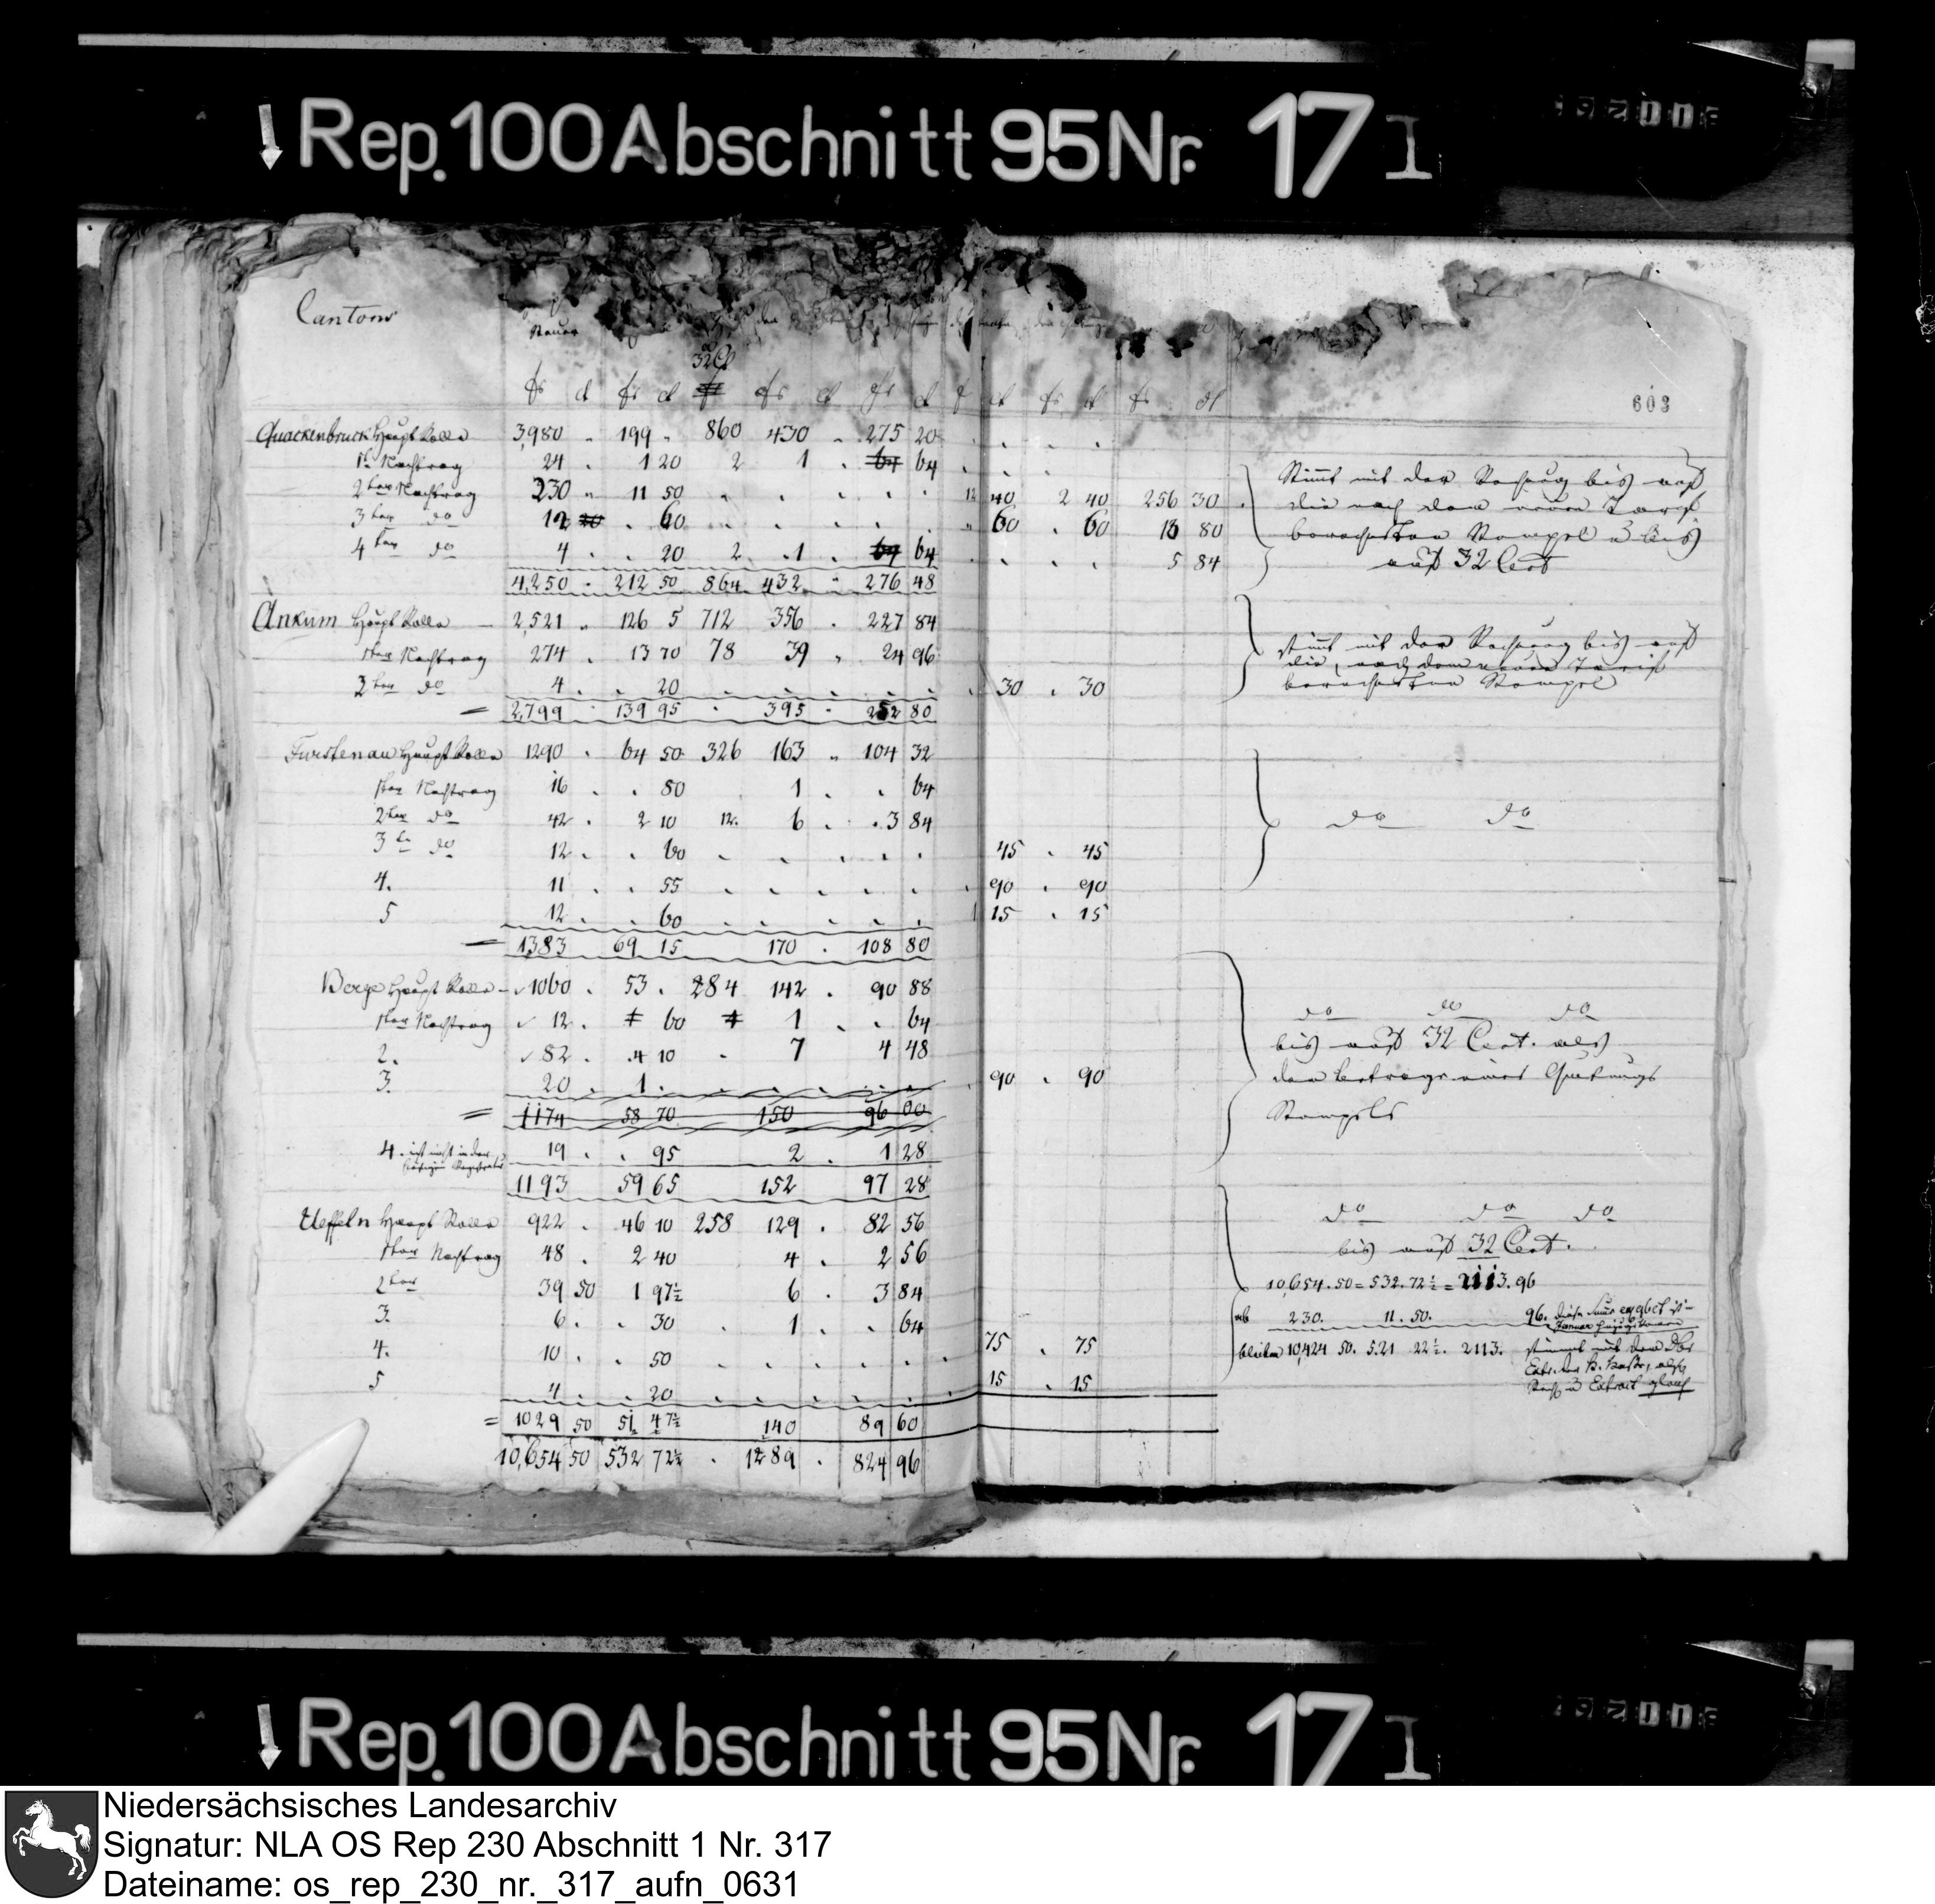 Rep. 100 Abschnitt 95 Nr. 17 I
Cantons
Steuer
32 ct
fr ct fr ct fr ct fr ct ct fr ct fr ct
603
Quackenbruck Haupt Rolle 3,980 " 199 " 860 430 " 275 20
1r Nachtrag 24 . 1 20 2 1 . 64 64
2ter Nachtrag 230 " 11 50 12 40 2 40 256 30
3ter do 12 20 . 60 60 . 60 13 80
4ter do 4 . . 20 2 1 64 64 5 84
4,250 . 212 50 864 432 . 276 48
Stimmt mit der Rechnung bis auf
die nach dem neuen Tarif
berechneten Stempel
auf 32 Cent
Ankum Haupt Rolle 2,521 " 126 5 712 356 . 227 84
1ter Nachtrag 274 . 13 70 78 39 " 24 96
2ter do 4 . . 20 30 . 30
= 2,799 139 95 . 395 . 252 80
stimmt mit der Rechnung bis auf
die, nach dem neuen Tarif
berechneten Stempel
Furstenau Haupt Rolle 1290 . 64 50 326 163 " 104 32
1ter Nachtrag 16 . . 80 1 . . 64
2ter do 42 . 2 10 12. 6 . . 3 84
3te do 12 . . 60 45 . 45
4. 11 . . 55 90 . 90
5 12 . . 60 1 15 . 15
= 1383 69 15 170 . 108 80
do do
Berge Haupt Rolle - 1060 . 53 . 284 142 . 90 88
1ter Nachtrag 12 . 60 1 . . 64
2. 82 . 4 10 . 7 4 48
3. 20 . 1 . 90 . 90
= 1174 58 70 150 96 00
4. ist nicht in der 19 . . 95 2 . 1 28
1193 59 65 152 97 28
do do do
bis auf 32 Cent. als
der Betrag eines Quitungs
Stempels
Ueffeln Haupt Rolle 922 . 46 10 258 129 . 82 56
1ter Nachtrag 48 . 2 40 4 . 2 56
2ter 39 50 1 97½ 6 . 3 84
3. 6 . . 30 . 1 . . 64
4. 10 . . 50 75 . 75
5 4 . . 20 15 . 15
= 1029 50 51 47½ 140 89 60
10,654 50 532 72½ . 1289 . 824 96
do do do
bis auf 32 Cent.
10,654.50 = 532.72½ = 2113.96
230. 11.50. 96.
bleiben 10,424 50. 521 22½. 2113. stimmt mit dem
Rep. 100 Abschnitt 95 Nr. 17 I
Niedersächsisches Landesarchiv
Signatur: NLA OS Rep 230 Abschnitt 1 Nr. 317
Dateiname: os_rep_230_nr._317_aufn_0631